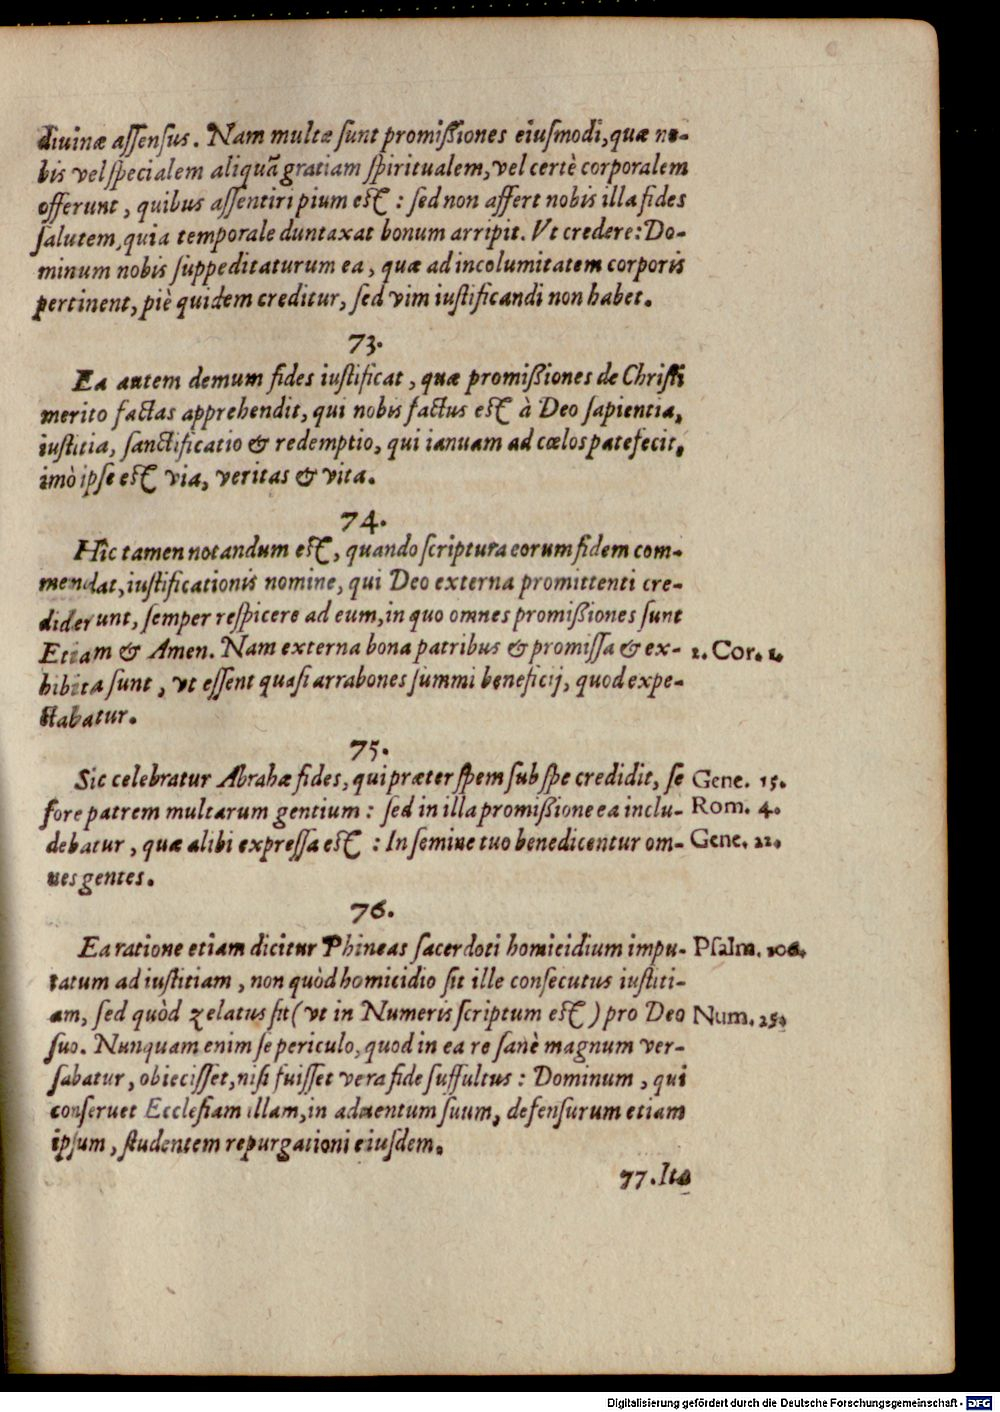 diuinæ assensus. Nam multæ sunt promissiones eiusmodi, quæ no-
bis vel specialem aliquā gratiam spiritualem, vel certè corporalem
offerunt, quibus assentiri pium est: sed non affert nobis illa fides
salutem, quia temporale duntaxat bonum arripit. Vt credere: Do-
minum nobis suppeditaturum ea, quæ ad incolumitatem corporis
pertinent, piè quidem creditur, sed vim iustificandi non habet.
73.
Ea autem demum fides iustificat, quæ promissiones de Christi
merito factas apprehendit, qui nobis factus est à Deo sapientia,
iustitia, sanctificatio & redemptio, qui ianuam ad cœlos patefecit,
imò ipse est via, veritas & vita.
74.
Hic tamen notandum est, quando scriptura eorum fidem com-
mendat, iustificationis nomine, qui Deo externa promittenti cre-
diderunt, semper respicere ad eum, in quo omnes promissiones sunt
Etiam & Amen. Nam externa bona patribus & promissa & ex- 2. Cor. 1.
hibita sunt, vt essent quasi arrabones summi beneficij, quod expe-
ctabatur.
75.
Sic celebratur Abrahæ fides, qui præter spem sub spe credidit, se Gene. 15.
fore patrem multarum gentium: sed in illa promissione ea inclu- Rom. 4.
debatur, quæ alibi expressa est: In semine tuo benedicentur om- Gene. 22.
nes gentes.
76.
Ea ratione etiam dicitur Phineas sacerdoti homicidium impu- Psalm. 106.
tatum ad iustitiam, non quòd homicidio sit ille consecutus iustiti-
am, sed quòd zelatus sit (vt in Numeris scriptum est) pro Deo Num. 25.
suo. Nunquam enim se periculo, quod in ea re sanè magnum ver-
sabatur, obiecisset, nisi fuisset vera fide suffultus: Dominum, qui
conseruet Ecclesiam illam, in aduentum suum, defensurum etiam
ipsum, studentem repurgationi eiusdem.
77. Ita
Digitalisierung gefördert durch die Deutsche Forschungsgemeinschaft - DFG